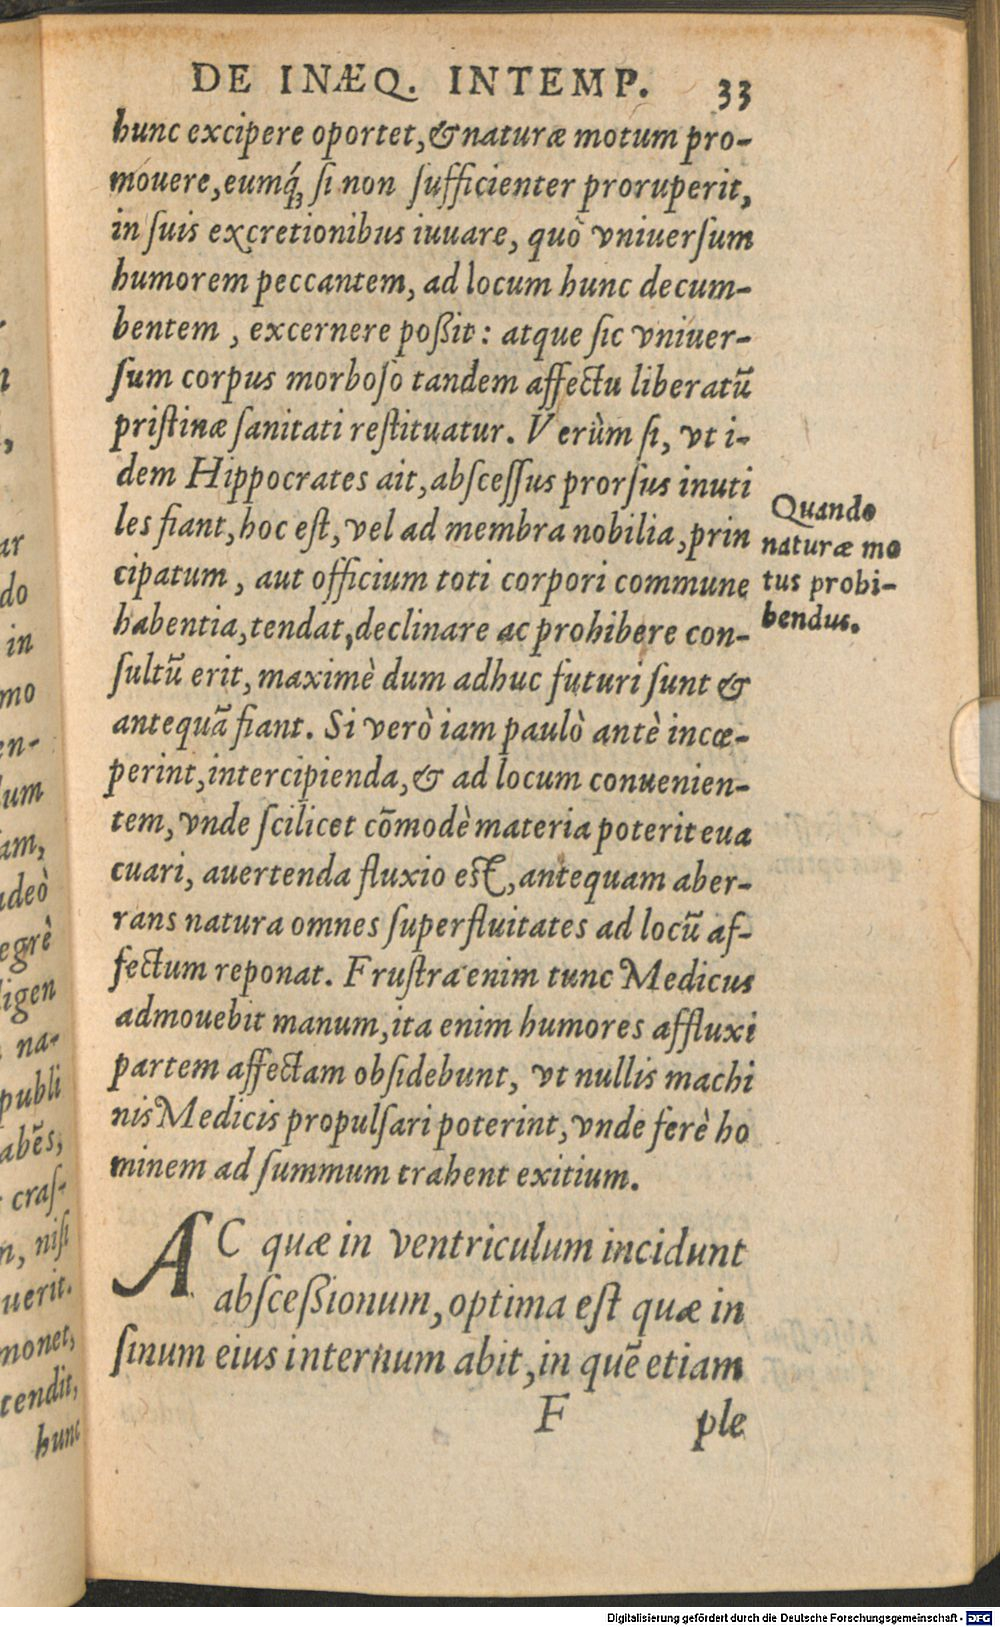 DE INÆQ. INTEMP. 33
hunc excipere oportet, & naturæ motum pro-
mouere, eumq́ꝫ si non sufficienter proruperit,
in suis excretionibus iuuare, quò vniuersum
humorem peccantem, ad locum hunc decum-
bentem, excernere poßit: atque sic vniuer-
sum corpus morboso tandem affectu liberatū
pristinæ sanitati restituatur. Verùm si, vt i-
dem Hippocrates ait, abscessus prorsus inuti
les fiant, hoc est, vel ad membra nobilia, prin
cipatum, aut officium toti corpori commune
habentia, tendat, declinare ac prohibere con-
sultū erit, maximè dum adhuc futuri sunt &
antequā fiant. Si verò iam paulò antè incœ-
perint, intercipienda, & ad locum conuenien-
tem, vnde scilicet cōmodè materia poterit eua
cuari, auertenda fluxio est, antequam aber-
rans natura omnes superfluitates ad locū af-
fectum reponat. Frustra enim tunc Medicus
admouebit manum, ita enim humores affluxi
partem affectam obsidebunt, vt nullis machi
nis Medicis propulsari poterint, vnde ferè ho
minem ad summum trahent exitium.
Quando
naturæ mo
tus probi-
bendus.
AC quæ in ventriculum incidunt
abscessionum, optima est quæ in
sinum eius internum abit, in quē etiam
F ple
ar
do
in
mo
en-
lum
am,
adeò
egrè
ligen
na-
publi
abēs,
cras-
n, nisi
uerit.
monet,
tendit,
hunc
Digitalisierung gefördert durch die Deutsche Forschungsgemeinschaft - DFG